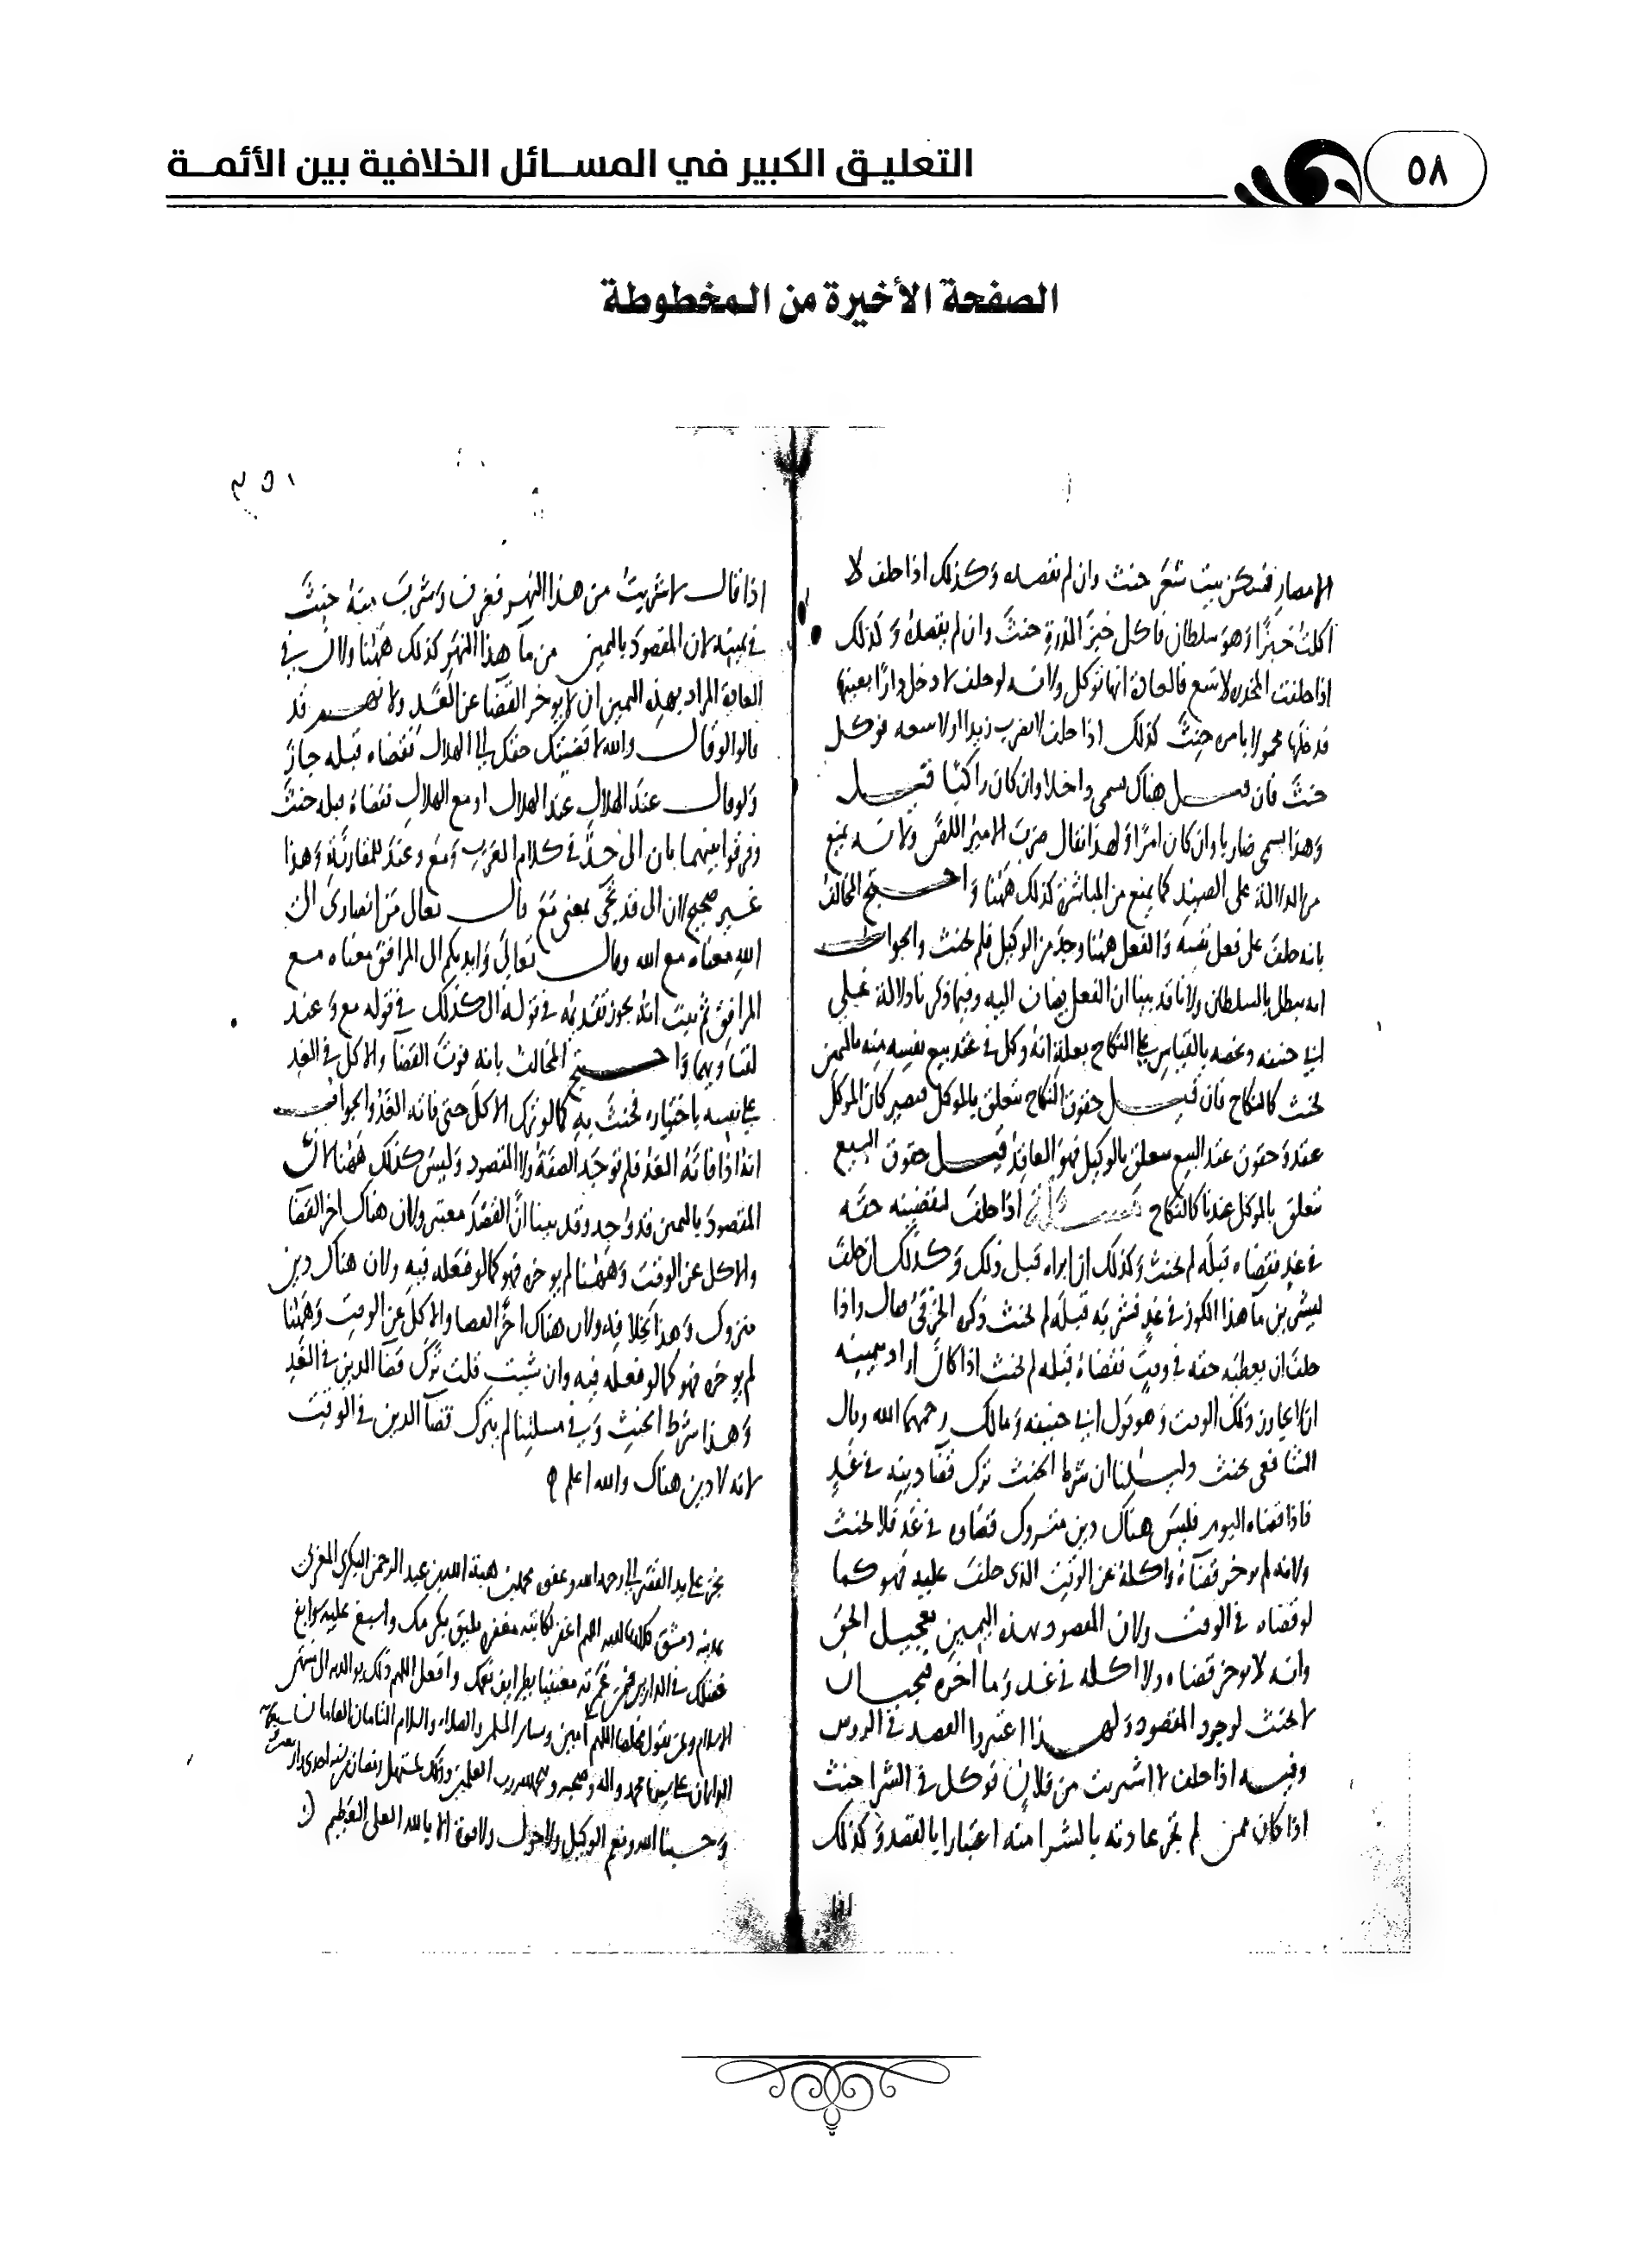 ٥٨
التعليق الكبير في المسائل الخلافية بين الأئمة
الصفحة الأخيرة من المخطوطة
٣٥١
الامصار فسكن بيت شعر حنث وان لم نقصده وكذلك اذا حلف لا
اكلت خبزا وهو سلطان فاكل خبز الذرة حنث وان لم يقصده وكذلك
اذا حلفت المخدره لا تبيع فالعادة انها توكل ولانه لو حلف لا دخل دارا بعينها
فدخلها محمولا بامره حنث كذلك اذا حلف لا يضرب زيدا او لا يبيعه فوكل
حنث فان قيل هناك يسمى داخلا وان كان راكبا قيل
وهذا يسمى ضاربا وان كان امرا ولهذا يقال ضرب الامير اللص ولانه يمنع
من الدلالة على الصيد كما يمنع من المباشرة كذلك ههنا واحتج المخالف
بانه حلف على فعل نفسه والفعل ههنا وجد من الوكيل فلم يحنث والجواب
انه يبطل بالسلطان ولانا قد بينا ان الفعل يضاف اليه وفيما ذكرنا دلالة على
ابي حنيفه ونخصه بالقياس على النكاح بعلة انه وكل في عقد بيع نفسه منه باليمين
يحنث كالنكاح فان قيل حقوق النكاح تتعلق بالموكل فيصير كان الموكل
عقد وحقوق عقد البيع تتعلق بالوكيل فهو العاقد قيل حقوق البيع
تتعلق بالموكل عندنا كالنكاح مسالة اذا حلف ليقضينه حقه
في غد فقضاه قبله لم يحنث وكذلك ان ابراه قبل ذلك وكذلك ان حلف
ليشربن ما هذا الكوز في غد فشربه قبله لم يحنث ذكره الخرقي فقال واذا
حلف ان يعطيه حقه في وقت فقضاه قبله لم يحنث اذا كان اراد بيمينه
ان لا يجاوز ذلك الوقت وهو قول ابي حنيفه ومالك رحمهما الله وقال
الشافعي يحنث دليلنا ان شرط الحنث ترك قضا دينه في غد
فاذا قضاه اليوم فليس هناك دين متروك قضاوه في غد فلا يحنث
ولانه لم يوخر قضاه واكله عن الوقت الذي حلف عليه فهو كما
لو قضاه في الوقت ولان المقصود بهذه اليمين تعجيل الحق
وانه لا يوخر قضاه ولا اكله في غد وما اخره فيجب ان
لا يحنث لوجود المقصود ولهذا اعتبروا القصد في الروس
وفيه اذا حلف لا اشتريت من فلان فوكل في الشرا حنث
اذا كان ممن لم تجر عادته بالشرا منه اعتبارا بالقصد وكذلك
اذا
اذا قال لا شربت من هذا النهر فغرف وشرب منه حنث
في يمينه لان المقصود باليمين من ما هذا النهر كذلك ههنا ولان في
العادة المراد بهذه اليمين ان لا يوخر القضا عن الغد ولانهم قد
قالوا لو قال والله لاقضينك حقك الى الهلال فقضاه قبله جاز
ولو قال عند الهلال عند الهلال او مع الهلال فقضاه قبله حنث
وفرقوا بينهما بان الى حد في كلام العرب ومع وعند للمقارنة وهذا
غير صحيح لان الى قد تجي بمعنى مع قال تعالى من انصاري الى
الله معناه مع الله وقال تعالى وايديكم الى المرافق معناه مع
المرافق ثم ثبت انه يجوز تقديمه في قوله الى كذلك في قوله مع وعند
لتساويهما واحتج المخالف بانه فوت القضا والاكل في الغد
على نفسه باختياره فحنث به كما لو ترك الاكل حتى فاته الغد والجواب
انه اذا فاته الغد فلم توجد الصفة ولا المقصود وليس كذلك ههنا لان
المقصود باليمين قد وجد وقد بينا ان القصد معتبر ولان هناك اخر القضا
والاكل عن الوقت وههنا لم يوخره فهو كما لو فعله فيه ولان هناك دين
متروك وهذا بخلافه ولان هناك اخر القضا والاكل عن الوقت وههنا
لم يوخره فهو كما لو فعله فيه وان شيت قلت ترك قضا الدين في الغد
وهذا شرط الحنث وفي مسلتنا لم يترك قضا الدين في الوقت
لانه لا دين هناك والله اعلم
نجز على يد الفقير الى رحمه الله وعفوه محمد بن هبة الله بن عبد الرحمن البكري المغربي
بمدينه دمشق كلاها الله اللهم اغفر لكاتبه مغفره تليق بكرمك واسبغ عليه سوابغ
فضلك في الدارين وافعل اللهم ذلك بوالديه
الاسلام ومن يقول مخلصا اللهم امين وساير المسلمين والصلاه والسلام التامان العامان
على سيدنا محمد واله وصحبه والحمد لله رب العلمين وذلك بمستهل رمضان سنه احدى
وحسبنا الله ونعم الوكيل ولا حول ولا قوة الا بالله العلي العظيم